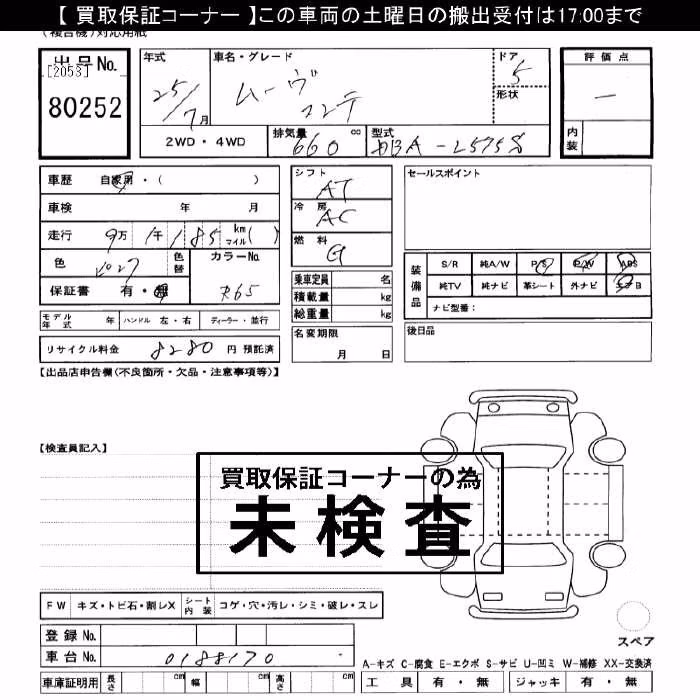 【 買取保証コーナー 】この車両の土曜日の搬出受付は17:00まで
(複合機)対応用紙
出品No.
[2053]
80252
年式
25/7月
車名・グレード
ムーヴ
コンテ
ドア
5
形状
評価点
―
内装
2WD・4WD
排気量
660 cc
型式
DBA-L575S
車歴 自家用・( )
車検 年 月
走行 9万 1千 185 km マイル( )
色
色替
カラーNo
R65
保証書 有・無
モデル年式 年 ハンドル 左・右 ディーラー・並行
リサイクル料金 8280 円 預託済
シフト
AT
冷房
AC
燃料
G
乗車定員 名
積載量 kg
総重量 kg
名変期限
月 日
セールスポイント
装備品
S/R 純A/W P/S P/W ABS
純TV 純ナビ 革シート 外ナビ エアB
ナビ型番:
後日品
【出品店申告欄(不良箇所・欠品・注意事項等)】
【検査員記入】
買取保証コーナーの為
未検査
FW キズ・トビ石・割レX シート内装 コゲ・穴・汚レ・シミ・破レ・スレ
登録No.
車台No. 0188170
車庫証明用 長さ cm 幅 cm 高さ cm
スペア
A-キズ C-腐食 E-エクボ S-サビ U-凹ミ W-補修 XX-交換済
工具 有・無 ジャッキ 有・無